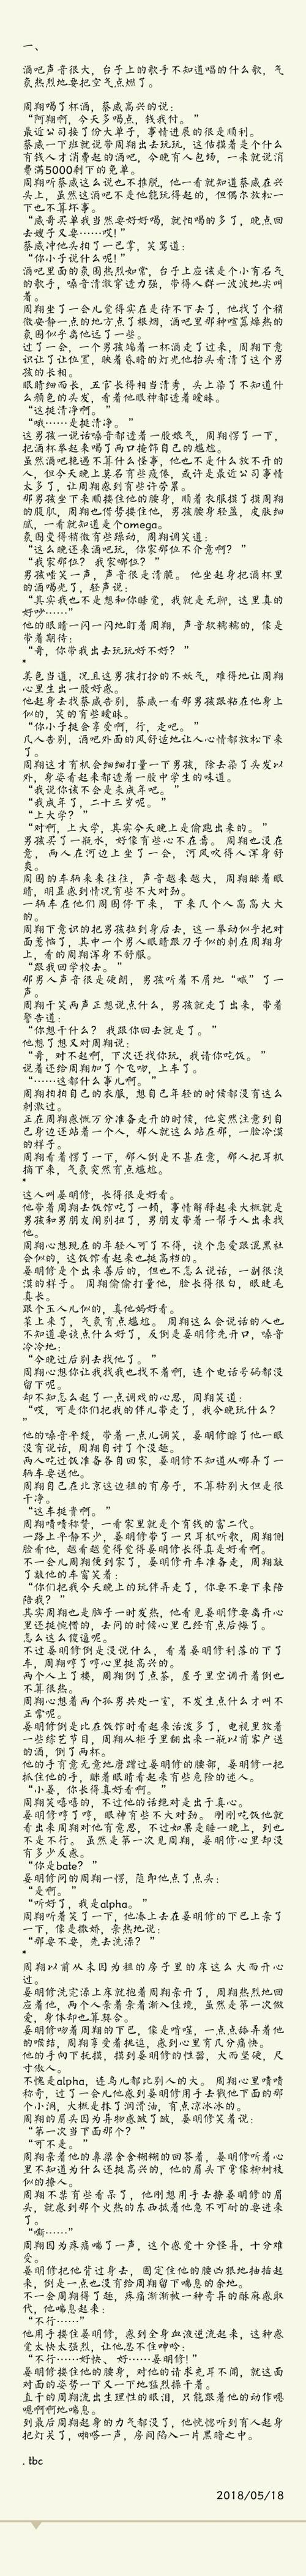 一、
酒吧声音很大，台子上的歌手不知道唱的什么歌，气
氛热烈地要把空气点燃了。
周翔喝了杯酒，蔡威高兴的说：
“阿翔啊，今天多喝点，钱我付。”
最近公司接了份大单子，事情进展的很是顺利。
蔡威一下班就说带周翔出去玩玩，这估摸着是个什么
有钱人才消费起的酒吧，今晚有人包场，一来就说消
费满5000剩下的免单。
周翔听蔡威这么说也不推脱，他一看就知道蔡威在兴
头上，虽然这酒吧不是他能玩得起的，但偶尔放松一
下也不算坏事。
“威哥买单我当然要好好喝，就怕喝的多了，晚点回
去嫂子又要……哎！”
蔡威冲他头拍了一巴掌，笑骂道：
“你小子说什么呢！”
酒吧里面的氛围热烈如常，台子上应该是个小有名气
的歌手，嗓音清澈穿透力强，带得人群一波波地尖叫
着。
周翔坐了一会儿觉得实在是待不下去了，他找了个稍
微安静一点的地方点了根烟，酒吧里那种喧嚣燥热的
氛围似乎离他远了一些。
过了一会，一个男孩端着一杯酒走了过来，周翔下意
识让了让位置，映着昏暗的灯光他抬头看清了这个男
孩的长相。
眼睛细而长，五官长得相当清秀，头上染了不知道什
么颜色的头发，看着他眼神都透着暧昧。
“这挺清净啊。”
“哦……是挺清净。”
这男孩一说话嗓音都透着一股娘气，周翔愣了一下，
把酒杯举起来喝了两口掩饰自己的尴尬。
虽然酒吧艳遇不算什么怪事，他也不是什么放不开的
人，但今天晚上莫名有些疲倦，或许是最近公司事情
太多了，让周翔感到有些许劳累。
那男孩坐下来顺搂住他的腰身，顺着衣服摸了摸周翔
的腹肌，周翔也借势搂住他，男孩腰身轻盈，皮肤细
腻，一看就知道是个omega。
氛围变得稍微有些躁动，周翔调笑道：
“这么晚还来酒吧玩，你家那位不介意啊？”
“我家那位？我家哪位？”
男孩嗤笑一声，声音很是清脆。他坐起身把酒杯里
的酒喝光了，轻声说：
“其实我也不是想和你睡觉，我就是无聊，这里真的
好吵……”
他的眼睛一闪一闪地盯着周翔，声音软糯糯的，像是
带着期待：
“哥，你带我出去玩玩好不好？”
*
美色当道，况且这男孩打扮的不妖气，难得地让周翔
心里生出一股好感。
他起身去找蔡威告别，蔡威一看那男孩跟粘在他身上
似的，笑的有些暧昧。
“你小子挺会享受啊，行，走吧。”
几人告别，酒吧外面的风舒适地让人心情都放松下来
了。
周翔这才有机会细细打量一下男孩，除去染了头发以
外，身姿看起来都透着一股中学生的味道。
“我说你该不会是未成年吧。”
“我成年了，二十三岁呢。”
“上大学？”
“对啊，上大学，其实今天晚上是偷跑出来的。”
男孩买了一瓶水，好像有些心不在焉。周翔也没在
意，两人在河边上坐了一会，河风吹得人浑身舒
爽。
周围的车辆来来往往，声音越来越大，周翔眯着眼
睛，明显感到情况有些不大对劲。
一辆车在他们周围停下来，下来几个人高高大大
的。
周翔下意识的把男孩拉到身后去，这一举动似乎把对
面惹恼了，其中一个男人眼睛跟刀子似的刺在周翔身
上，看的周翔浑身不舒服。
“跟我回学校去。”
那男人声音很是硬朗，男孩听着不屑地“嘁”了一
声。
周翔干笑两声正想说点什么，男孩就走了出来，带着
警告道：
“你想干什么？我跟你回去就是了。”
他想了想又对周翔说：
“哥，对不起啊，下次还找你玩，我请你吃饭。”
说着还给周翔加了个飞吻，上车了。
“……这都什么事儿啊。”
周翔拍拍自己的衣服，想自己年轻的时候都没有这么
刺激过。
正在周翔感慨万分准备走开的时候，他突然注意到自
己身边还站着一个人，那人就这么站在那，一脸冷漠
的样子。
周翔看着愣了一下，那人倒是不甚在意，那人把耳机
摘下来，气氛突然有点尴尬。
*
这人叫晏明修，长得很是好看。
他带着周翔去饭馆吃了一顿，事情解释起来大概就是
男孩和男朋友闹别扭了，男朋友带着一帮子人出来找
他。
周翔心想现在的年轻人可了不得，谈个恋爱跟混黑社
会似的。这饭馆看起来也挺高档的。
晏明修是个出来善后的，但也不怎么说话，一副很淡
漠的样子。周翔偷偷打量他，脸长得很白，眼睫毛
真长。
跟个玉人儿似的，真他妈好看。
菜上来了，气氛有点尴尬。周翔这么会说话的人也
不知道要谈点什么好了，反倒是晏明修先开口，嗓音
冷冷地：
“今晚过后别去找他了。”
周翔心想你让我找我也找不着啊，连个电话号码都没
留下呢。
却不知怎么起了一点调戏的心思，周翔笑道：
“哎，可是你们把我的伴儿带走了，我今晚玩什么？
”
他的嗓音平缓，带着一点儿调笑，晏明修瞟了他一眼
没有说话，周翔自讨了个没趣。
两人吃过饭准备各自回家，晏明修不知道从哪弄了一
辆车要送他。
周翔自己在北京这边租的有房子，不算特别大但是很
干净。
“这车挺贵啊。”
周翔啧啧称赞，一看家里就是个有钱的富二代。
一路上平静不少，晏明修带了一只耳机听歌，周翔侧
脸看他，越看越觉得觉得晏明修长得真是好看啊。
不一会儿周翔便到家了，晏明修开车准备走，周翔敲
了敲他的车窗笑着：
“你们把我今天晚上的玩伴弄走了，你要不要下来陪
陪我？”
其实周翔也是脑子一时发热，他看见晏明修要离开心
里还挺惋惜的，去问的时候心里已经有点后悔了。
怎么这么傻逼呢。
不过晏明修倒是没说什么，看着晏明修利落的下了
车，周翔哼了哼心里挺高兴的。
两个人上了楼，周翔倒了点茶，屋子里空调开着倒也
不算很热。
周翔心想着两个孤男共处一室，不发生点什么才叫不
正常呢。
晏明修倒是比在饭馆时看起来活泼多了，电视里放着
一些综艺节目，周翔从柜子里翻出来一瓶以前客户送
的酒，倒了两杯。
他的手有意无意地磨蹭过晏明修的腰部，晏明修一把
抓住他的手，眯着眼睛看起来有些危险的迷人。
“小晏，你长得真好看啊。”
周翔笑嘻嘻的，不过他的话绝对是出于真心。
晏明修哼了哼，眼神有些不大对劲。刚刚吃饭他就
看出来周翔对他有意思，不过如果是睡一晚上，到也
不是不行。虽然是第一次见周翔，晏明修心里却没
有多少反感。
“你是bate？”
晏明修问的周翔一愣，随即他点了点头：
“是啊。”
“听好了，我是alpha。”
周翔听着笑了一下，他凑上去在晏明修的下巴上亲了
一下，像是撒娇，亲热地说：
“那要不要，先去洗澡？”
*
周翔以前从未因为租的房子里的床这么大而开心
过。
晏明修洗完澡上床就抱着周翔亲开了，周翔热烈地回
应着他，两个人亲着亲着渐入佳境，虽然是第一次做
爱，身体却也算契合。
晏明修吻着周翔的下巴，像是啃噬，一点点舔弄着他
的喉结，周翔享受着挑逗，感到心里有几分痛快。
他的手向下抚摸，摸到晏明修的性器，大而坚硬，尺
寸傲人。
不愧是alpha，连鸟儿都比别人的大。周翔心里啧啧
称奇，过了一会儿他感到晏明修用手去戳他下面的那
个小洞，大概是抹了润滑油，有点凉冰冰的。
周翔的眉头因为异物感皱了皱，晏明修笑着说：
“第一次当下面那个？”
“可不是。”
周翔亲着他的鼻梁含含糊糊的回答着，晏明修听着心
里不知道为什么还挺高兴的，他的眉头下弯像柳树枝
似的撩人。
周翔不禁有些看呆了，他刚想用手去撩晏明修的眉
头，就感到那个火热的东西抵着他急不可耐的要进来
了。
“嘶……”
周翔因为疼痛喘了一声，这个感觉十分怪异，十分难
受。
晏明修把他背过身去，固定住他的腰凶狠地抽插起
来，倒是一点也没有给周翔留下喘息的余地。
不一会周翔得了趣，疼痛渐渐被一种奇异的酥麻感取
代，他喘息起来：
“不行……”
他用手搂住晏明修，感到全身血液逆流起来，这种感
觉太快太强烈，让他忍不住呻吟：
“不行……好快、好……晏明修！”
晏明修搂住他的腰身，对他的请求充耳不闻，就这面
对面的姿势一下又一下地猛烈操干着。
直干的周翔流出生理性的眼泪，只能跟着他的动作嗯
嗯啊啊地喘息。
到最后周翔起身的力气都没了，他恍惚听到有人起身
把灯关了，啪嗒一声，房间陷入一片黑暗之中。
. tbc
2018/05/18